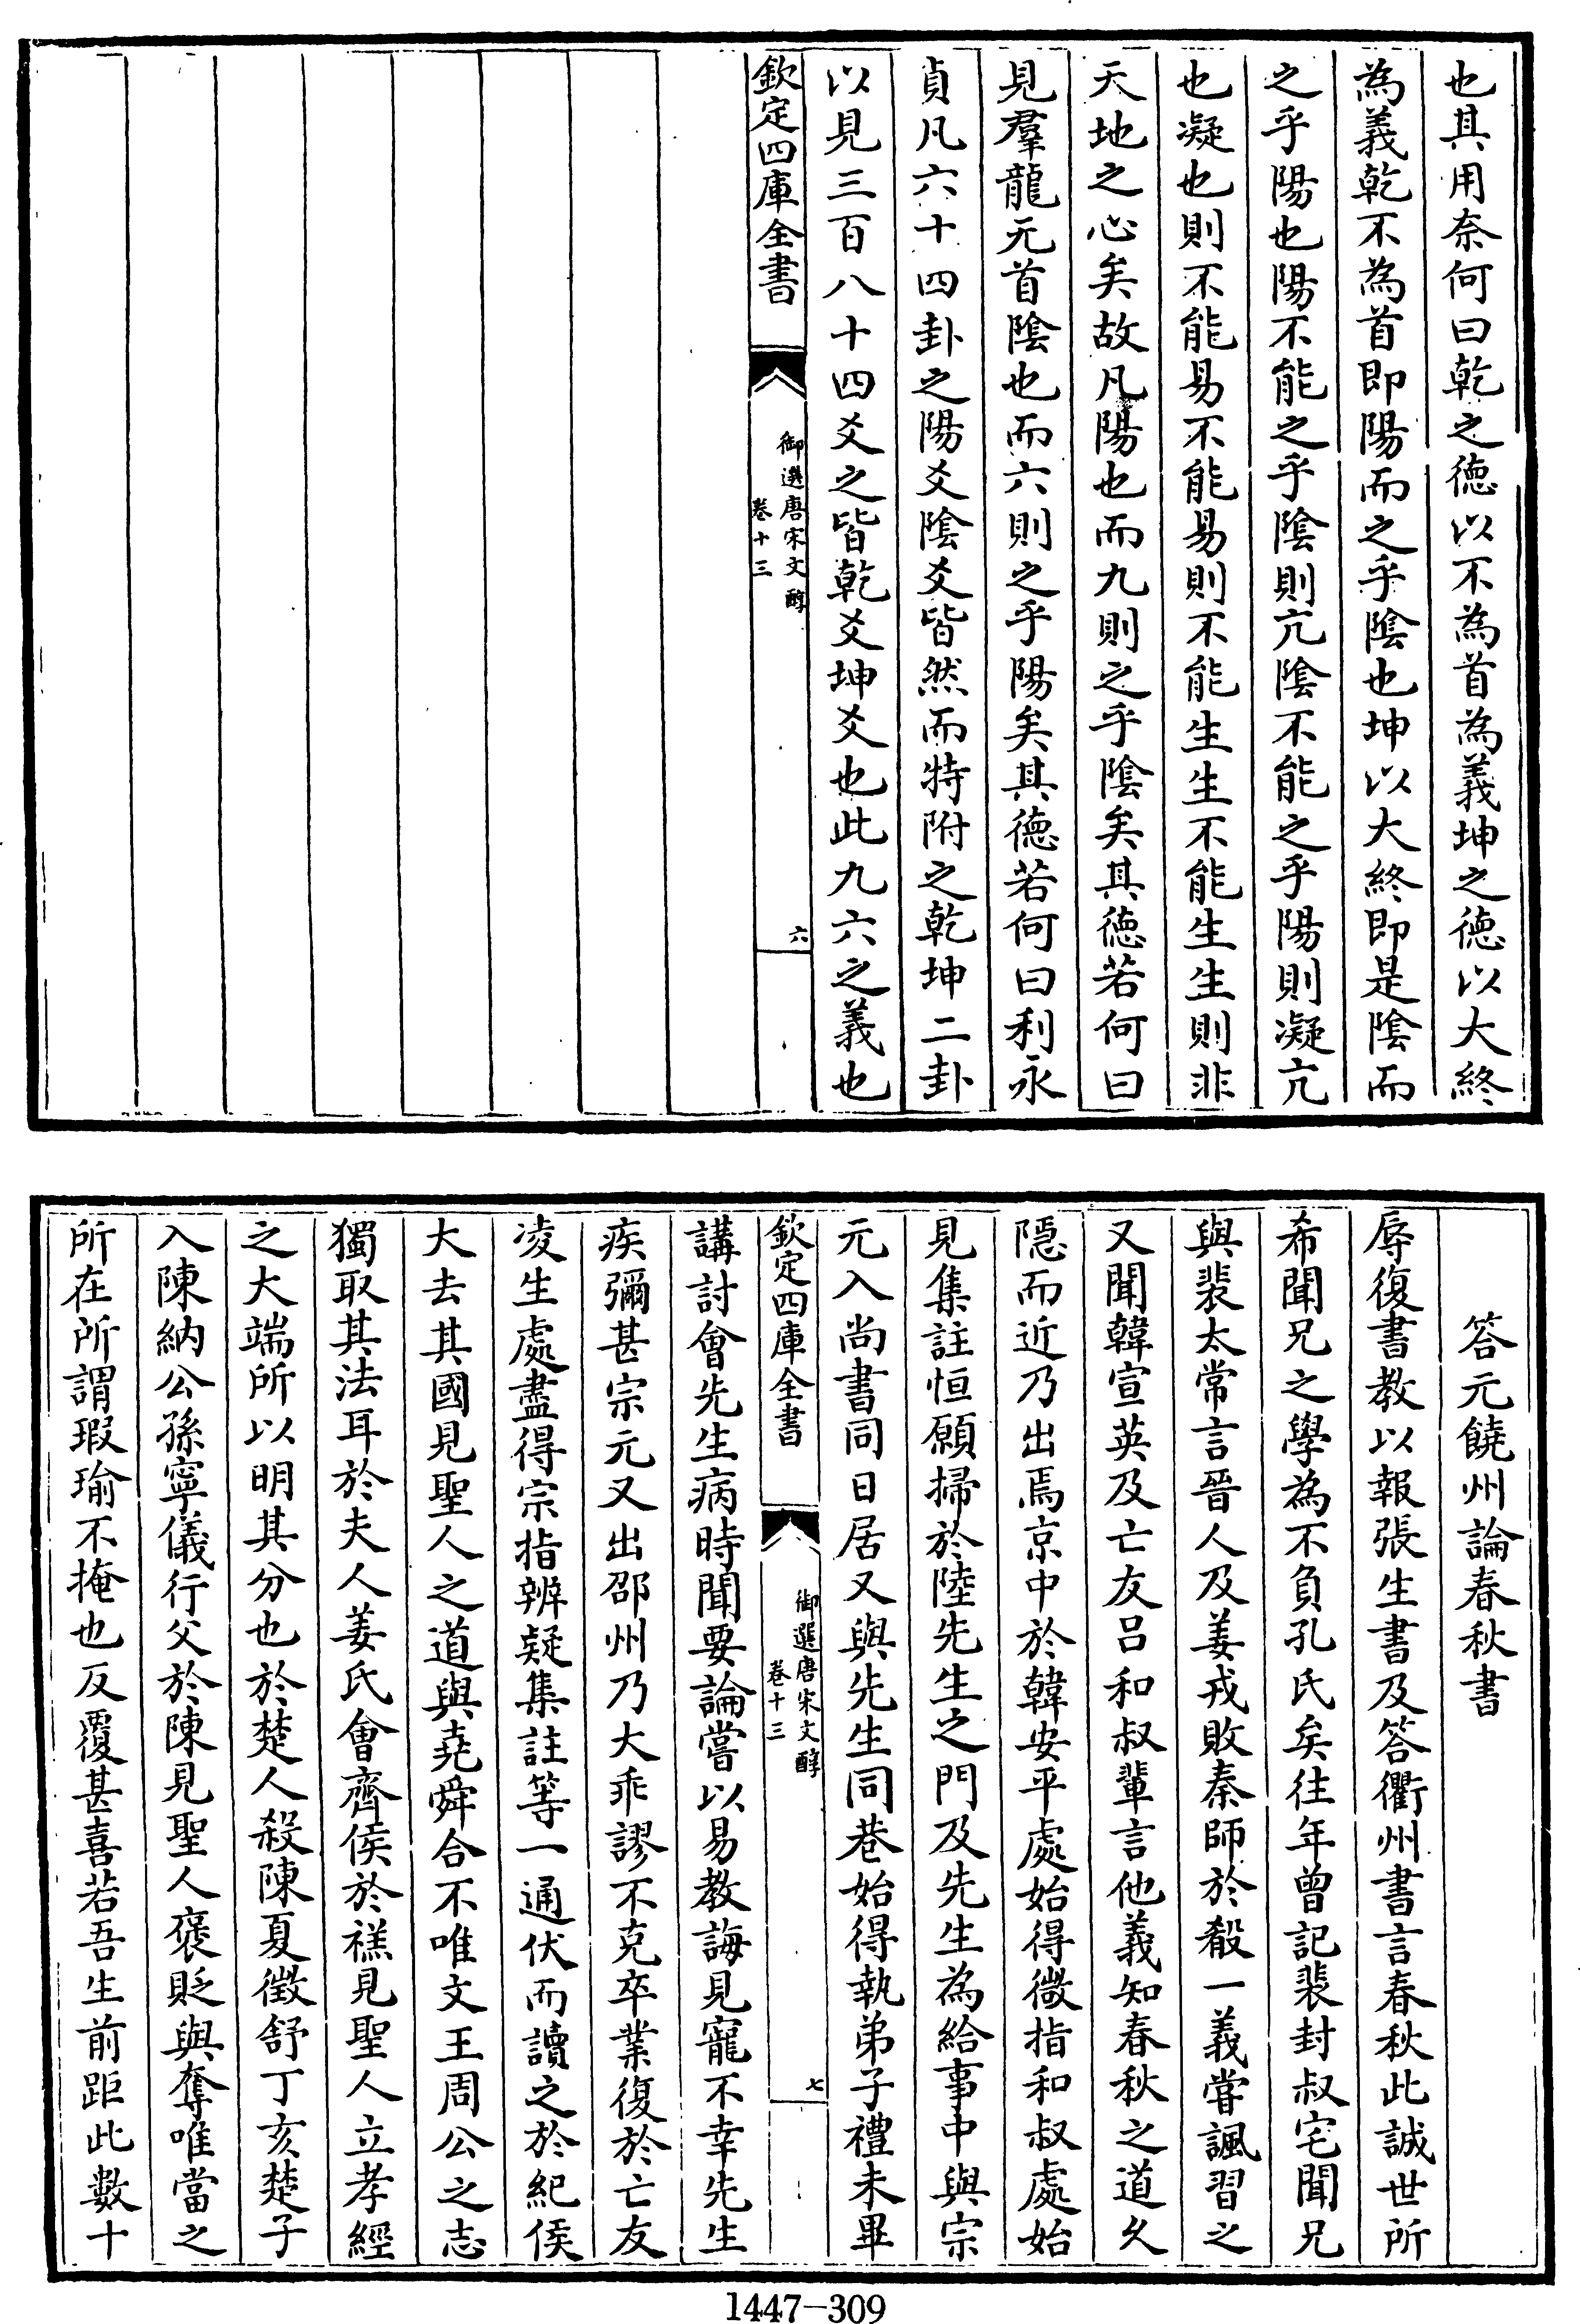 也其用奈何曰乾之德以不為首為義坤之德以大終
為義乾不為首即陽而之乎陰也坤以大終即是陰而
之乎陽也陽不能之乎陰則亢陰不能之乎陽則凝亢
也凝也則不能易不能易則不能生生不能生生則非
天地之心矣故凡陽也而九則之乎陰矣其德若何曰
見羣龍元首陰也而六則之乎陽矣其德若何曰利永
貞凡六十四卦之陽爻陰爻皆然而特附之乾坤二卦
以見三百八十四爻之皆乾爻坤爻也此九六之義也
欽定四庫全書
御選唐宋文醇
卷十三
六
答元饒州論春秋書
辱復書教以報張生書及答衢州書言春秋此誠世所
希聞兄之學為不負孔氏矣往年曾記裴封叔宅聞兄
與裴太常言晉人及姜戎敗秦師於殽一義嘗諷習之
又聞韓宣英及亡友吕和叔輩言他義知春秋之道久
隱而近乃出焉京中於韓安平處始得微指和叔處始
見集註恒願掃於陸先生之門及先生為給事中與宗
元入尚書同日居又與先生同巷始得執弟子禮未畢
欽定四庫全書
御選唐宋文醇
卷十三
七
講討會先生病時聞要論嘗以易教誨見寵不幸先生
疾彌甚宗元又出邵州乃大乖謬不克卒業復於亡友
凌生處盡得宗指辨疑集註等一通伏而讀之於紀侯
大去其國見聖人之道與堯舜合不唯文王周公之志
獨取其法耳於夫人姜氏會齊侯於禚見聖人立孝經
之大端所以明其分也於楚人殺陳夏徵舒丁亥楚子
入陳納公孫寧儀行父於陳見聖人褒貶與奪唯當之
所在所謂瑕瑜不掩也反覆甚喜若吾生前距此數十
1447-309